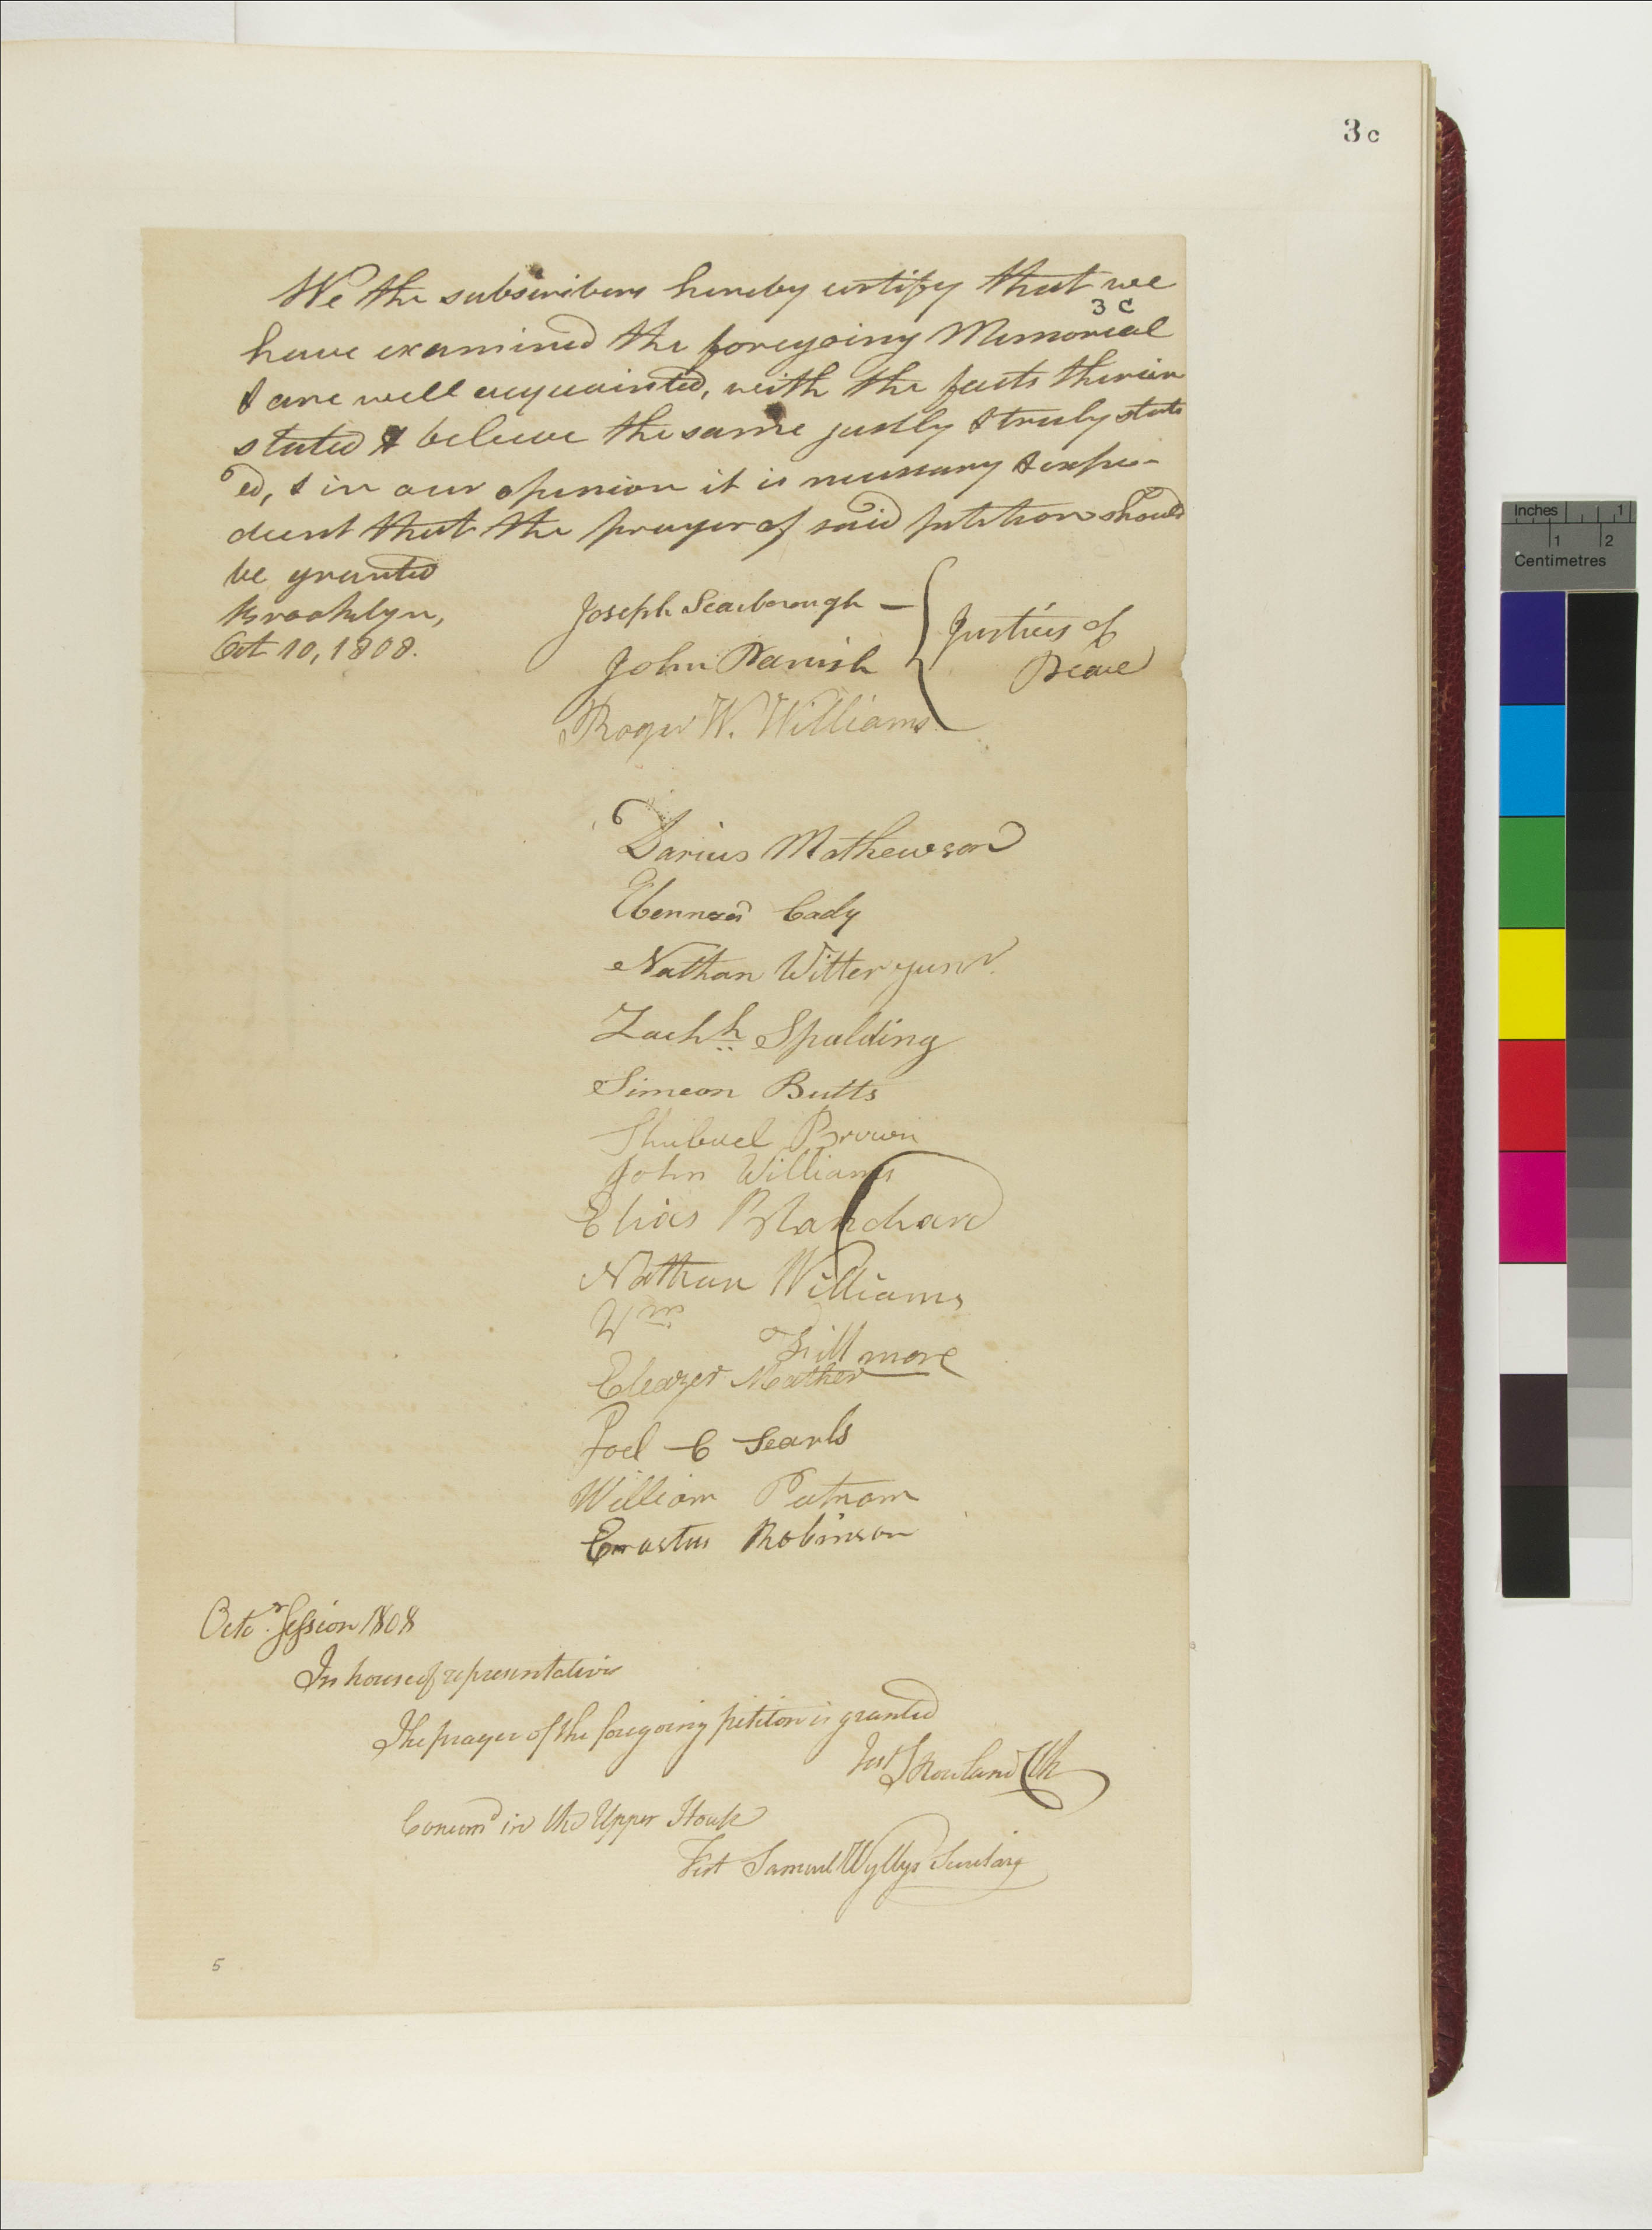 3c
We the subscribers hereby certify that we
3 C
have examined the foregoing Memorial
& are well acquainted, with the facts therein
stated & believe the same justly & truly stats
ed, & in our opinion it is necessary & expe-
dient that the prayer of said petition should
be granted
Brooklyn,
Oct 10, 1808.
Joseph Scarborough —
John Parrish
Roger W. Williams
Justices of
Peace
Darius Mathewson
Ebenezer Cady
Nathan Witter junr.
Zachh Spalding
Simeon Butts
Shubael Brown
John Williams
Elias Blanchard
Nathan Williams
Wm Fillmore
Eleazer Mather
Joel C Searls
William Putnam
Erastus Robinson
Octr. Session 1808
In house of representatives
The prayer of the foregoing petition is granted
Test J Rowland Clk
Concurrd in the Upper House
Test Samuel Wyllys Secretary
5
Inches 1
1 2
Centimetres